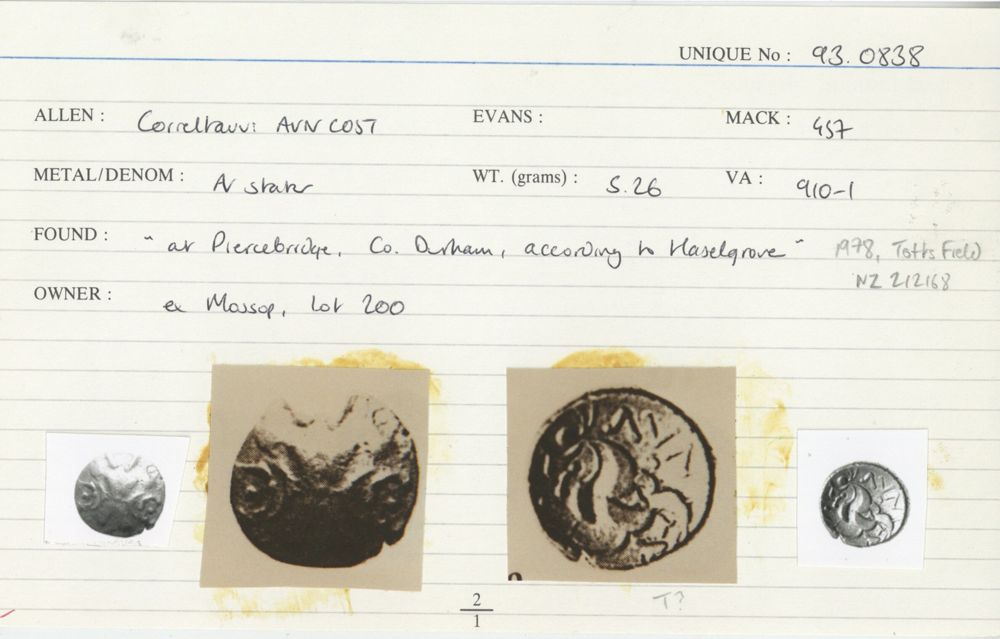 UNIQUE No : 93.0838
ALLEN : Correltauvi AVN COST EVANS : MACK : 457
METAL/DENOM : AV stater WT. (grams) : 5.26 VA : 910-1
FOUND : "at Piercebridge, Co. Durham, according to Haselgrove" 1978, Tofts Field
NZ 212168
OWNER : ex Mossop, lot 200
2
1
T?